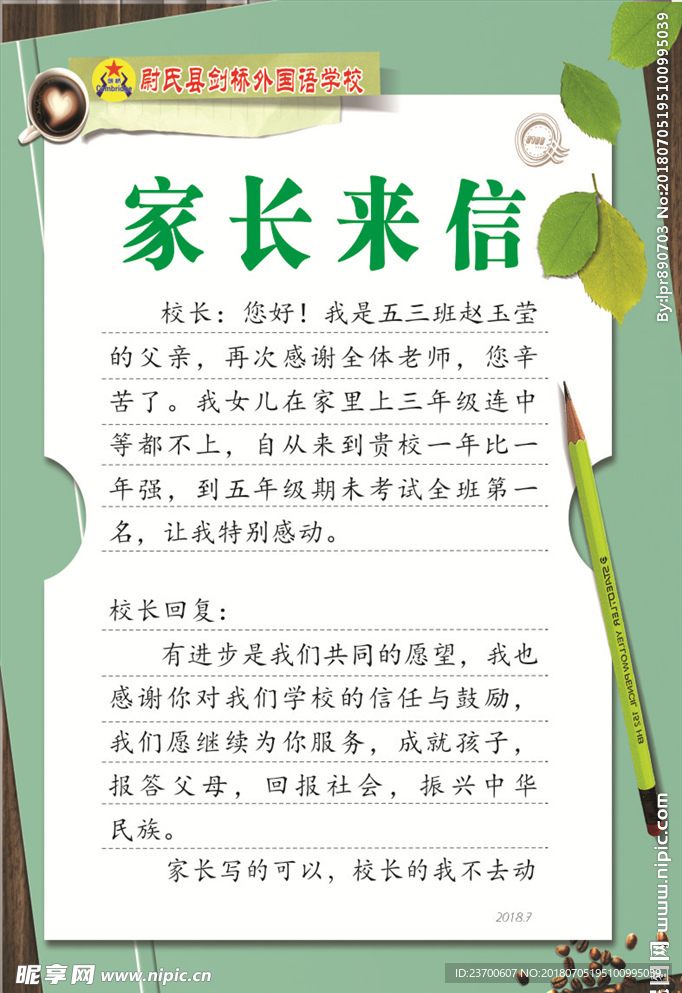 Cambridge
尉氏县剑桥外国语学校
家长来信
校长：您好！我是五三班赵玉莹
的父亲，再次感谢全体老师，您辛
苦了。我女儿在家里上三年级连中
等都不上，自从来到贵校一年比一
年强，到五年级期末考试全班第一
名，让我特别感动。
校长回复：
有进步是我们共同的愿望，我也
感谢你对我们学校的信任与鼓励，
我们愿继续为你服务，成就孩子，
报答父母，回报社会，振兴中华
民族。
家长写的可以，校长的我不去动
2018.7
STAEDTLER YELLOW PENCIL 152 HB
By:lpr890703 No:20180705195100995039
www.nipic.com
昵享网 www.nipic.cn
ID:23700607 NO:20180705195100995039